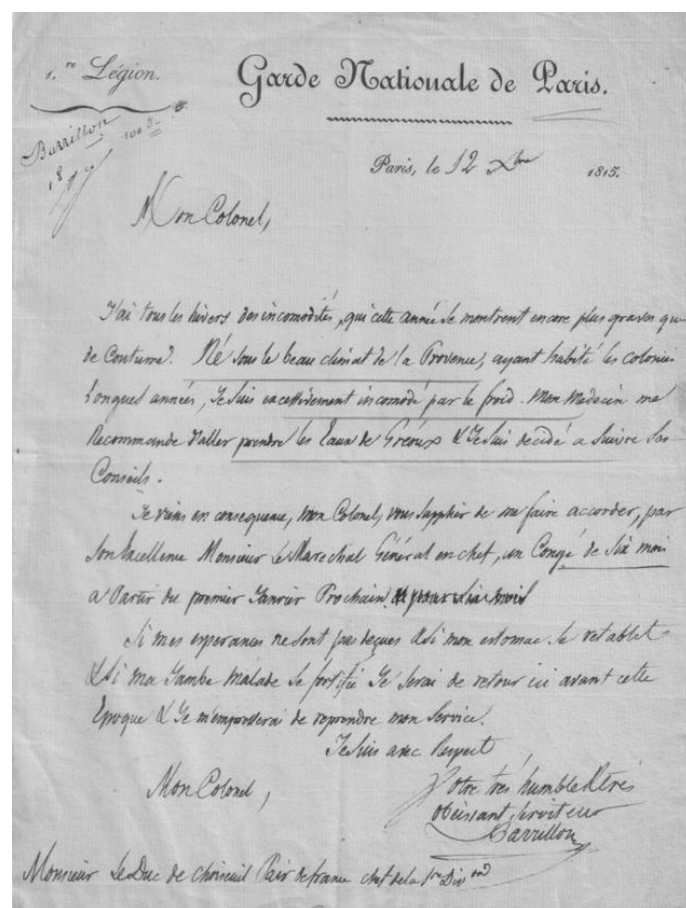 1.re Légion.
Garde Nationale de Paris.
Barrillon
Paris, le 12 Xbre 1815.
Mon Colonel,
J'ai tous les hivers des incomodités, qui cette année se montrent encore plus graves que
de Coutume. Né sous le beau climat de la Provence, ayant habité les colonies
longues années, Je suis excessivement incomodé par le froid. Mon Medecin me
Recommande d'aller prendre les Eaux de Gréoux & Je suis decidé a suivre ses
Conseils.
Je viens en consequence, mon Colonel, vous supplier de me faire accorder, par
Son Excellence Monsieur Le Marechal Général en chef, un Congé de Six mois
a Partir du premier Janvier Prochain
Si mes esperances ne sont pas deçues & Si mon estomac se retablet
& Si ma Jambe malade se fortifie Je serai de retour ici avant cette
Epoque & Je m'empresserai de reprendre mon Service.
Je suis avec Respect
Mon Colonel,
Votre très humble & très
obeissant Serviteur
Barrillon
Monsieur Le Duc de Choiseuil Pair de france chef de la 1re Dion